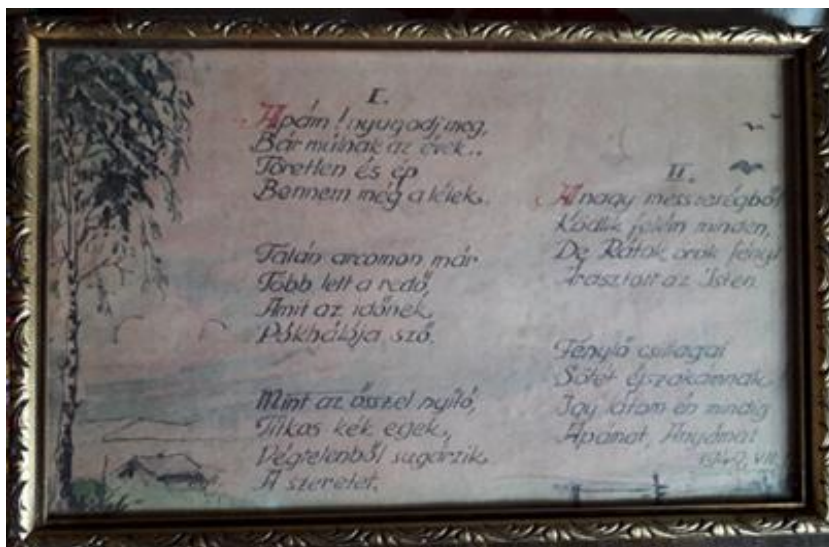 I.
Apám! nyugodj meg,
Bár múlnak az évek..
Töretlen és ép
Bennem még a lélek.
Talán arcomon már
Több lett a redő,
Amit az időnek,
Pókhálója sző.
Mint az ősszel nyíló,
Titkos kék egek,
Végtelenből sugárzik,
A szeretet.
II.
A nagy messzeségből
Ködlik felém minden,
De Rátok örök fényt
Árasztott az Isten.
Fénylő csillagai
Sötét éjszakámnak,
Így látom én mindig
Apámat, Anyámat
1949, VII.